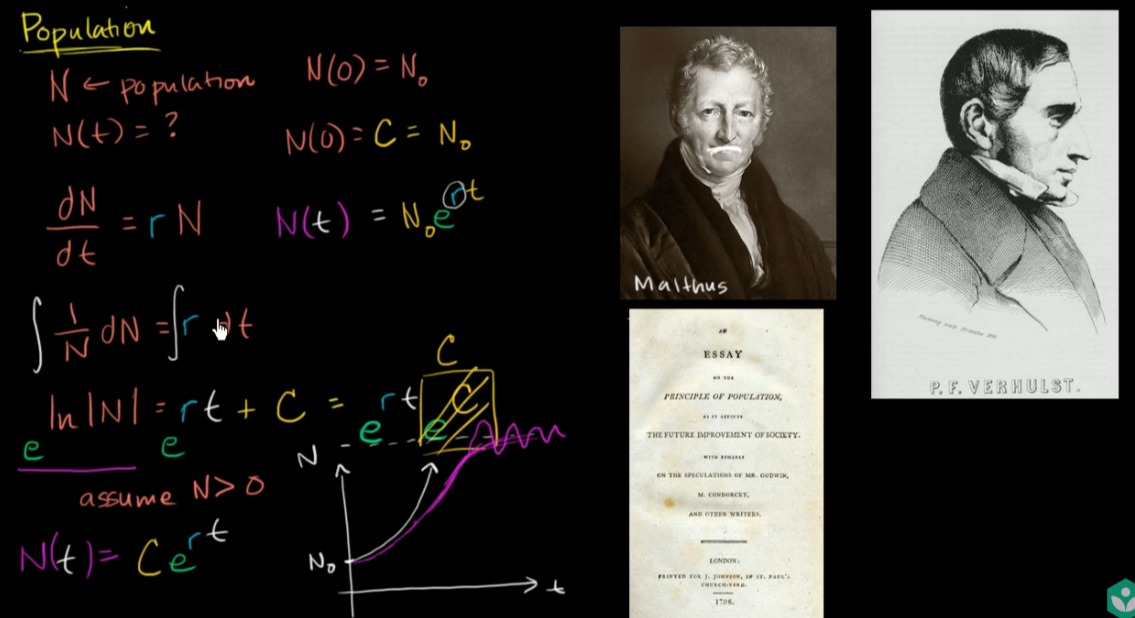 Population
N ← population
N(t) = ?
dN/dt = r N
∫ 1/N dN = ∫ r dt
ln|N| = rt + C = e^rt e^C
e e
C
assume N > 0
N(t) = C e^rt
N(0) = N₀
N(0) = C = N₀
N(t) = N₀e^rt
N
N₀
t
Malthus
AN
ESSAY
ON THE
PRINCIPLE OF POPULATION,
AS IT AFFECTS
THE FUTURE IMPROVEMENT OF SOCIETY.
WITH REMARKS
ON THE SPECULATIONS OF MR. GODWIN,
M. CONDORCET,
AND OTHER WRITERS.
LONDON:
PRINTED FOR J. JOHNSON, IN ST. PAUL'S
CHURCH-YARD.
1798.
P. F. VERHULST.